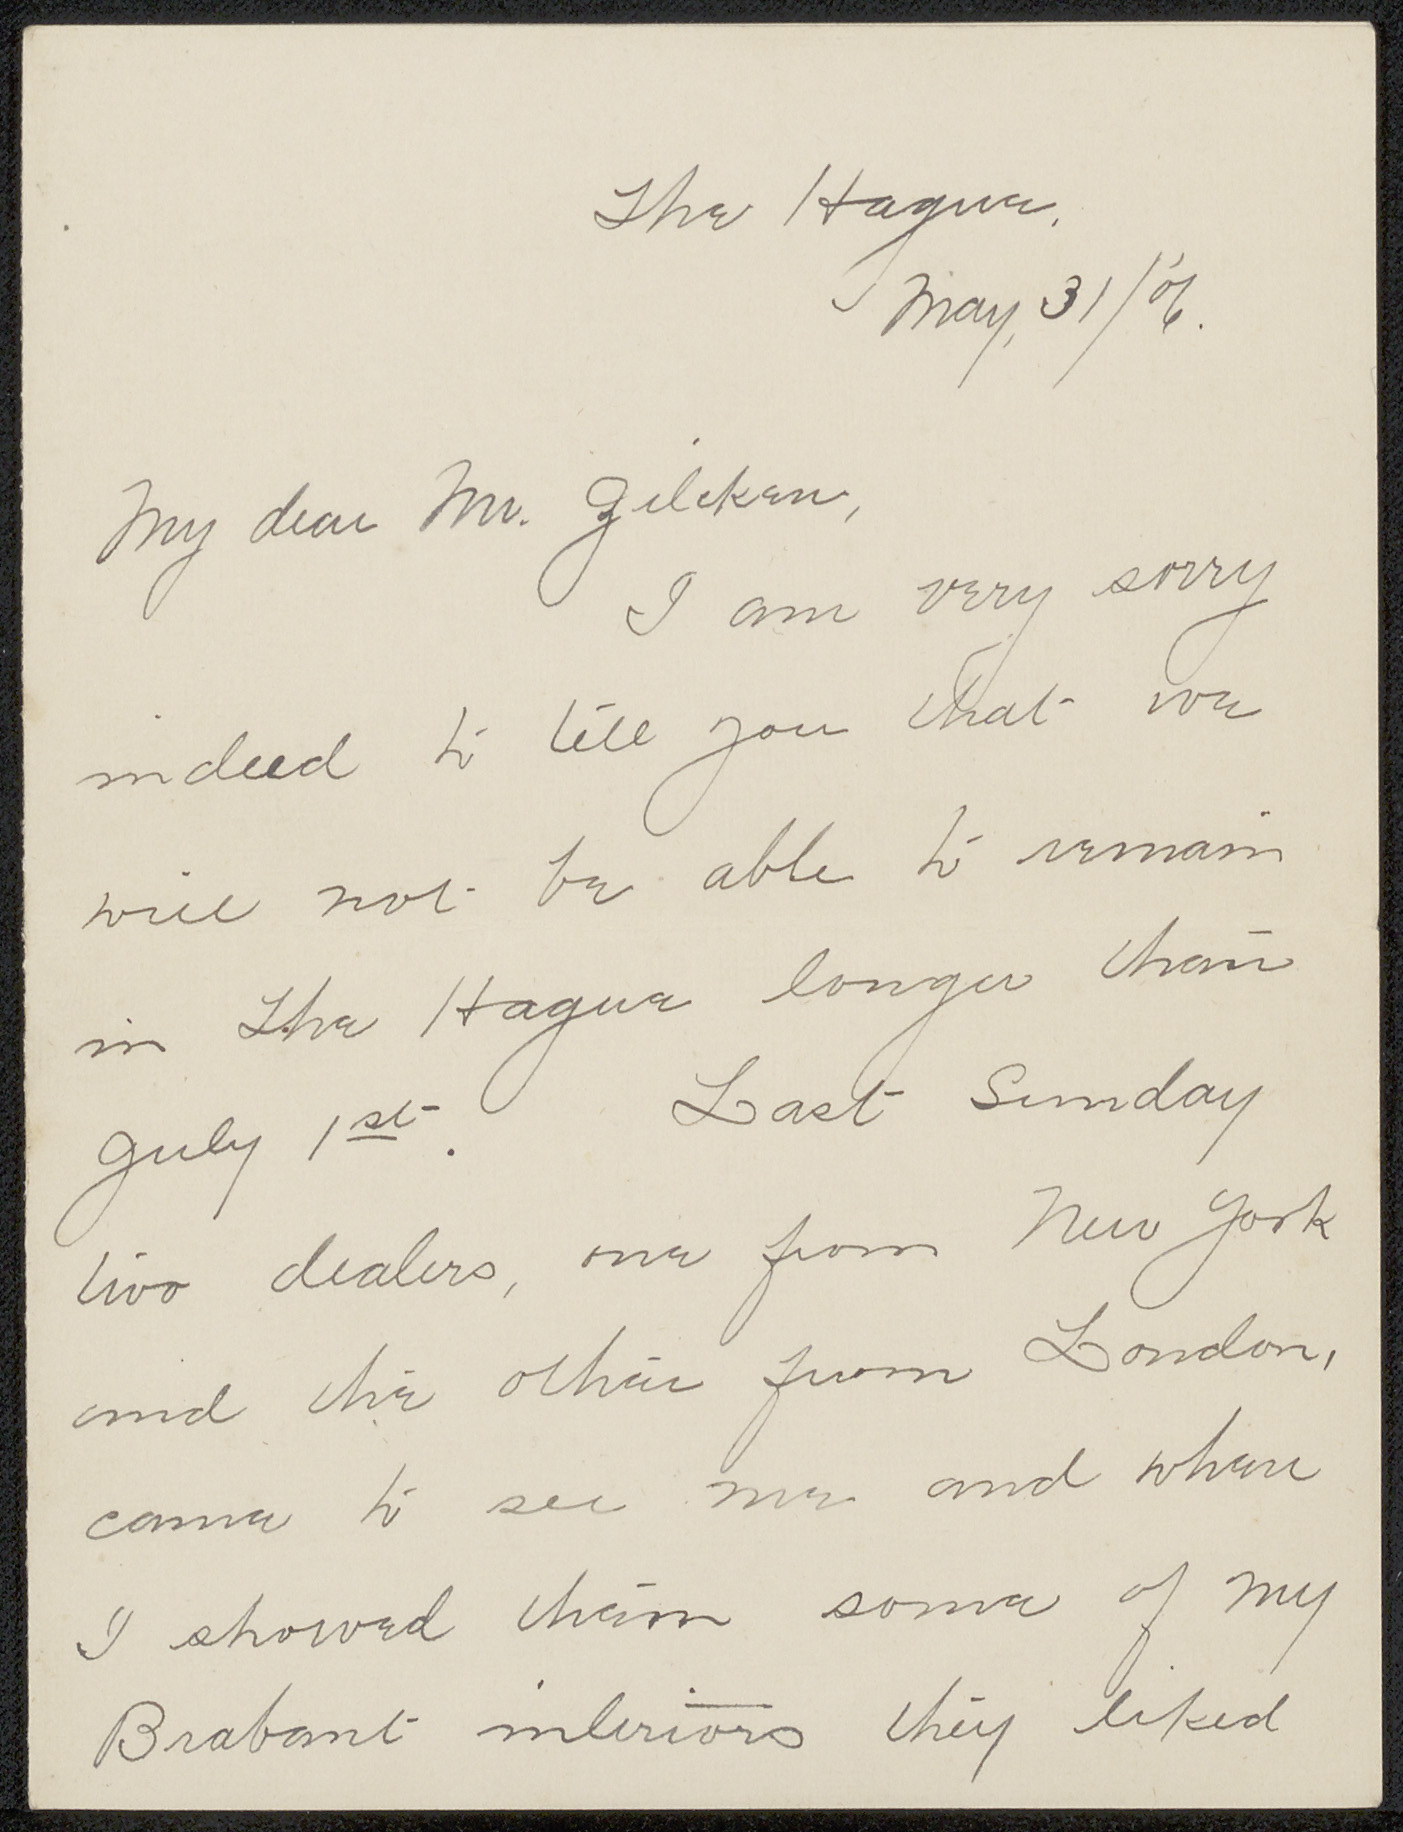 The Hague.
May, 31/'06.
My dear Mr. Zilcken,
I am very sorry
indeed to tell you that we
will not be able to remain
in The Hague longer than
July 1st. Last Sunday
two dealers, one from New York
and the other from London,
came to see me and when
I showed them some of my
Brabant interiors they liked